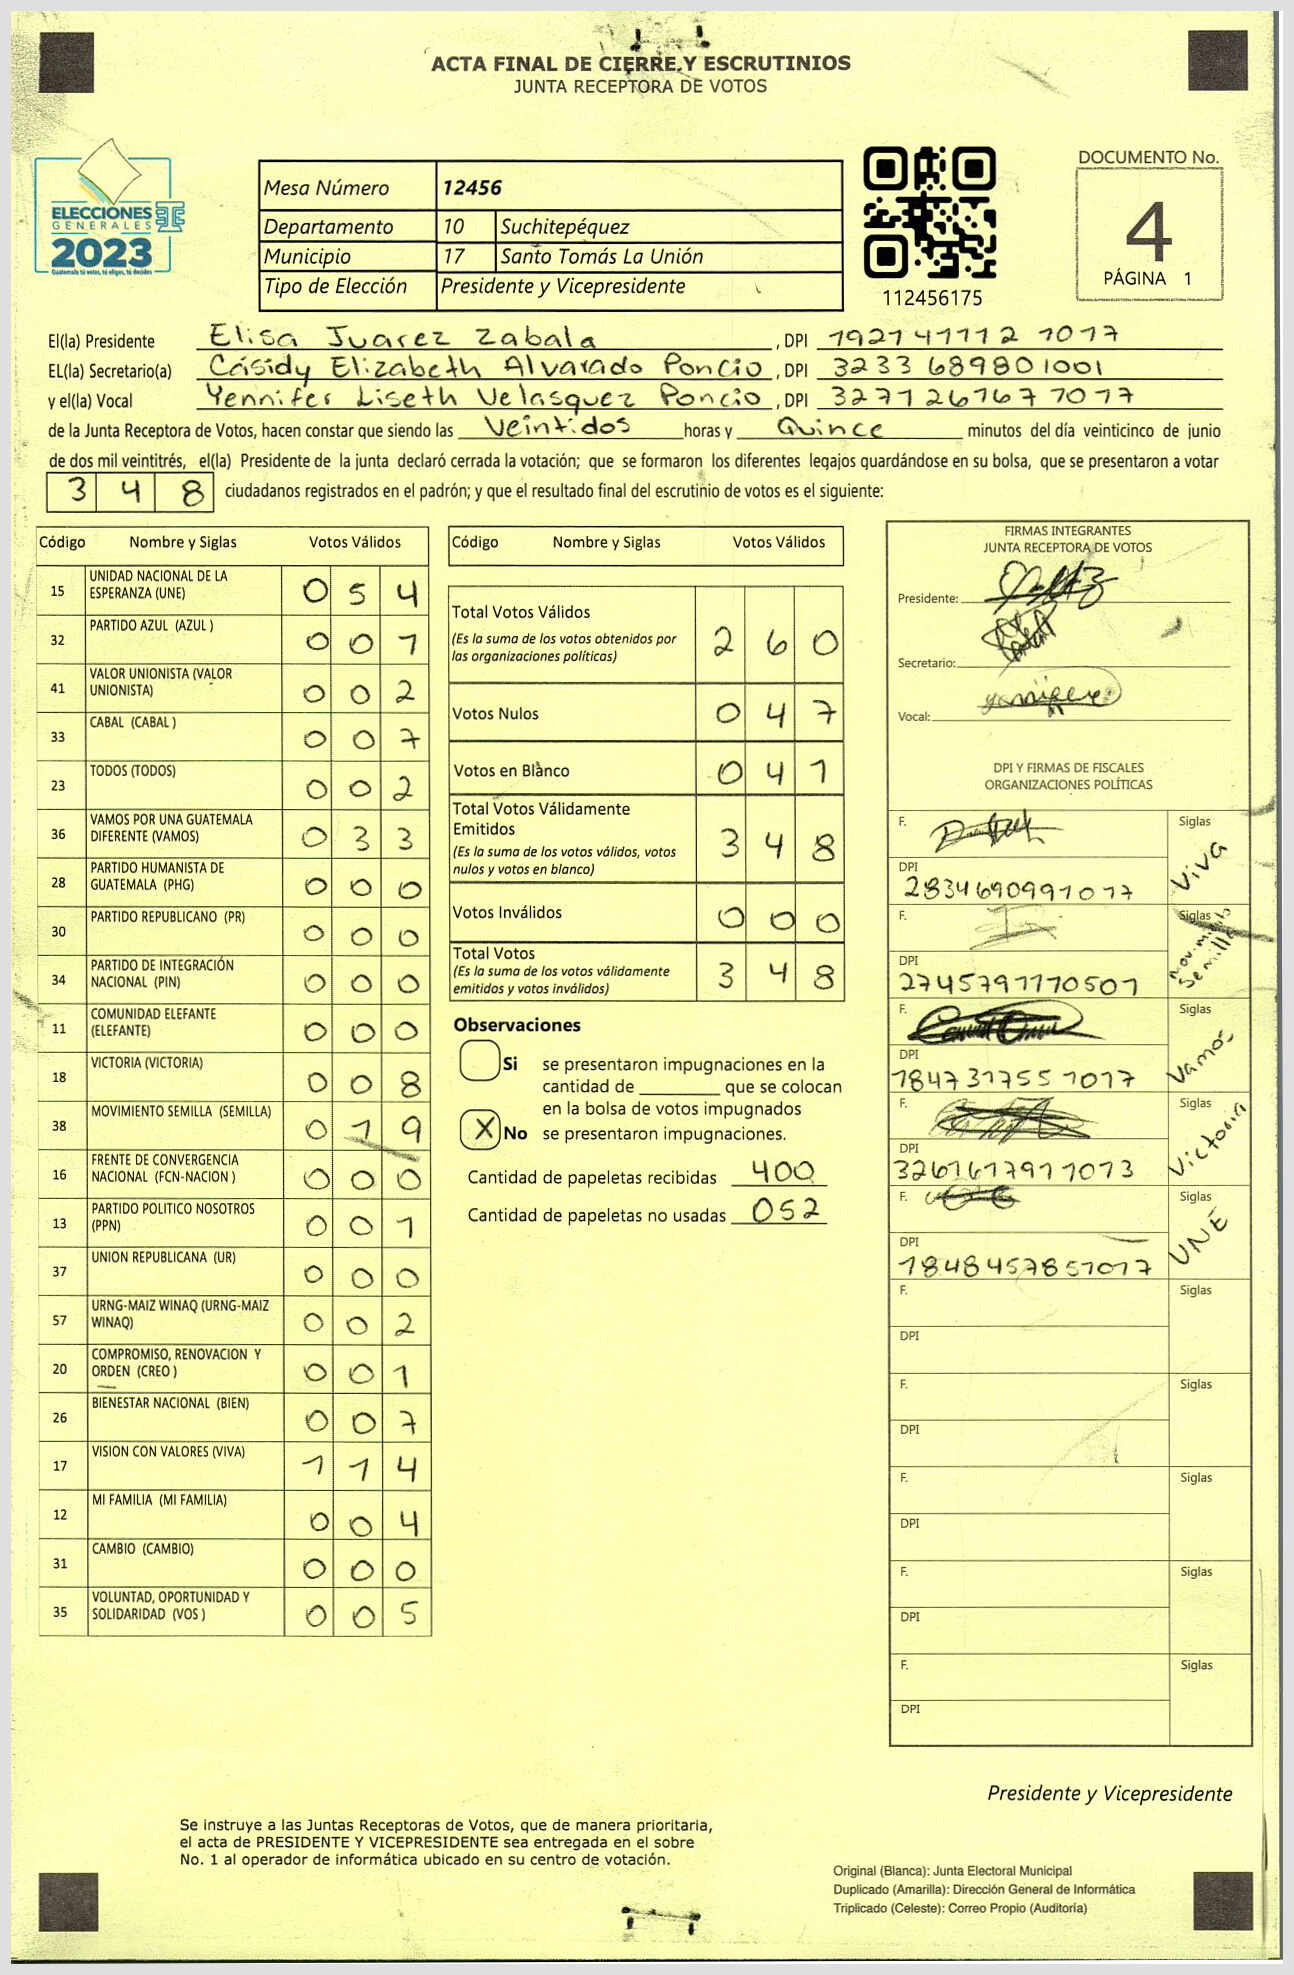 ACTA FINAL DE CIERRE Y ESCRUTINIOS
JUNTA RECEPTORA DE VOTOS
ELECCIONES
GENERALES
2023
Guatemala tú votas, tú eliges, tú decides
Mesa Número 12456
Departamento 10 Suchitepéquez
Municipio 17 Santo Tomás La Unión
Tipo de Elección Presidente y Vicepresidente
112456175
DOCUMENTO No.
4
PÁGINA 1
El(la) Presidente Elisa Juarez Zabala, DPI 1921 41112 1017
EL(la) Secretario(a) Cásidy Elizabeth Alvarado Poncio, DPI 3233 689801001
y el(la) Vocal Yennifer Liseth Velasquez Poncio, DPI 3271267677017
de la Junta Receptora de Votos, hacen constar que siendo las Veintidos horas y Quince minutos del día veinticinco de junio
de dos mil veintitrés, el(la) Presidente de la junta declaró cerrada la votación; que se formaron los diferentes legajos guardándose en su bolsa, que se presentaron a votar
3 4 8 ciudadanos registrados en el padrón; y que el resultado final del escrutinio de votos es el siguiente:
Código Nombre y Siglas Votos Válidos
15 UNIDAD NACIONAL DE LA ESPERANZA (UNE) 0 5 4
32 PARTIDO AZUL (AZUL ) 0 0 1
41 VALOR UNIONISTA (VALOR UNIONISTA) 0 0 2
33 CABAL (CABAL ) 0 0 7
23 TODOS (TODOS) 0 0 2
36 VAMOS POR UNA GUATEMALA DIFERENTE (VAMOS) 0 3 3
28 PARTIDO HUMANISTA DE GUATEMALA (PHG) 0 0 0
30 PARTIDO REPUBLICANO (PR) 0 0 0
34 PARTIDO DE INTEGRACIÓN NACIONAL (PIN) 0 0 0
11 COMUNIDAD ELEFANTE (ELEFANTE) 0 0 0
18 VICTORIA (VICTORIA) 0 0 8
38 MOVIMIENTO SEMILLA (SEMILLA) 0 1 9
16 FRENTE DE CONVERGENCIA NACIONAL (FCN-NACION ) 0 0 0
13 PARTIDO POLITICO NOSOTROS (PPN) 0 0 1
37 UNION REPUBLICANA (UR) 0 0 0
57 URNG-MAIZ WINAQ (URNG-MAIZ WINAQ) 0 0 2
20 COMPROMISO, RENOVACION Y ORDEN (CREO ) 0 0 1
26 BIENESTAR NACIONAL (BIEN) 0 0 7
17 VISION CON VALORES (VIVA) 1 1 4
12 MI FAMILIA (MI FAMILIA) 0 0 4
31 CAMBIO (CAMBIO) 0 0 0
35 VOLUNTAD, OPORTUNIDAD Y SOLIDARIDAD (VOS ) 0 0 5
Código Nombre y Siglas Votos Válidos
Total Votos Válidos 2 6 0
(Es la suma de los votos obtenidos por las organizaciones políticas)
Votos Nulos 0 4 7
Votos en Blanco 0 4 1
Total Votos Válidamente Emitidos 3 4 8
(Es la suma de los votos válidos, votos nulos y votos en blanco)
Votos Inválidos 0 0 0
Total Votos 3 4 8
(Es la suma de los votos válidamente emitidos y votos inválidos)
Observaciones
Si se presentaron impugnaciones en la
cantidad de ________ que se colocan
en la bolsa de votos impugnados
X No se presentaron impugnaciones.
Cantidad de papeletas recibidas 400
Cantidad de papeletas no usadas 052
FIRMAS INTEGRANTES
JUNTA RECEPTORA DE VOTOS
Presidente:
Secretario:
Vocal:
DPI Y FIRMAS DE FISCALES
ORGANIZACIONES POLÍTICAS
F. Siglas Viva
DPI 2834690991017
F. Siglas Movimiento Semilla
DPI 2745791170501
F. Siglas Vamos
DPI 1847317551017
F. Siglas Victoria
DPI 3261617911013
F. Siglas UNE
DPI 1848457851017
F. Siglas
DPI
F. Siglas
DPI
F. Siglas
DPI
F. Siglas
DPI
F. Siglas
DPI
Presidente y Vicepresidente
Se instruye a las Juntas Receptoras de Votos, que de manera prioritaria,
el acta de PRESIDENTE Y VICEPRESIDENTE sea entregada en el sobre
No. 1 al operador de informática ubicado en su centro de votación.
Original (Blanca): Junta Electoral Municipal
Duplicado (Amarilla): Dirección General de Informática
Triplicado (Celeste): Correo Propio (Auditoría)